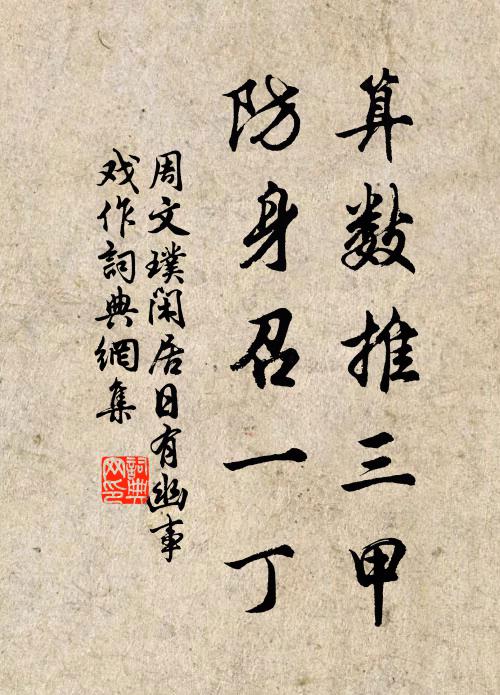 算数推三甲
防身召一丁
周文璞闲居日有幽事
戏作詞典網集
詞典网印